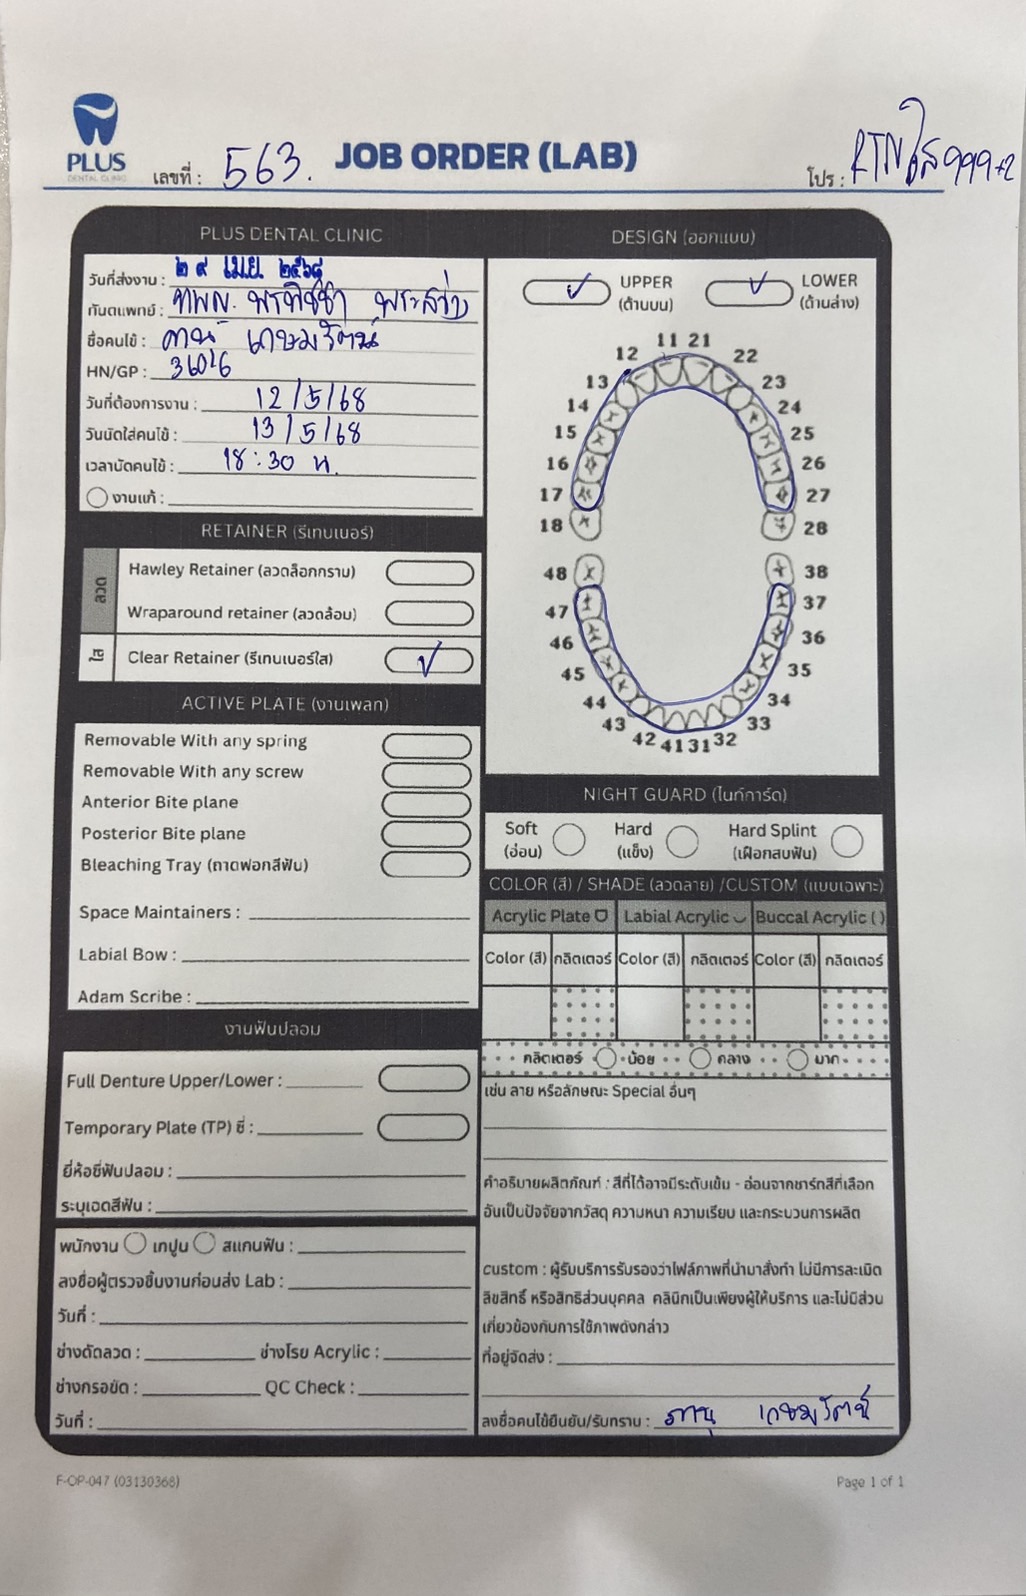 PLUS
DENTAL CLINIC
เลขที่ : 563.
JOB ORDER (LAB)
โปร : RTNใส 999+2
PLUS DENTAL CLINIC
วันที่ส่งงาน : ๒๙ เม.ย. ๒๕๖๘
ทันตแพทย์ : ทพญ.
ชื่อคนไข้ : ภาณุ เกษมรัตน์
HN/GP : 36016
วันที่ต้องการงาน : 12/5/68
วันนัดใส่คนไข้ : 13/5/68
เวลานัดคนไข้ : 18:30 น.
งานแก้ :
RETAINER (รีเทนเนอร์)
ลวด
Hawley Retainer (ลวดล็อกกราม)
Wraparound retainer (ลวดล้อม)
ใส
Clear Retainer (รีเทนเนอร์ใส)
ACTIVE PLATE (งานเพลท)
Removable With any spring
Removable With any screw
Anterior Bite plane
Posterior Bite plane
Bleaching Tray (ถาดฟอกสีฟัน)
Space Maintainers :
Labial Bow :
Adam Scribe :
งานฟันปลอม
Full Denture Upper/Lower :
Temporary Plate (TP) ซี่ :
ยี่ห้อซี่ฟันปลอม :
ระบุเฉดสีฟัน :
พนักงาน เทปูน สแกนฟัน :
ลงชื่อผู้ตรวจชิ้นงานก่อนส่ง Lab :
วันที่ :
ช่างดัดลวด : ช่างโรย Acrylic :
ช่างกรอขัด : QC Check :
วันที่ :
DESIGN (ออกแบบ)
UPPER (ด้านบน)
LOWER (ด้านล่าง)
11 21
12 22
13 23
14 24
15 25
16 26
17 27
18 28
48 38
47 37
46 36
45 35
44 34
43 33
42 41 31 32
NIGHT GUARD (ไนท์การ์ด)
Soft (อ่อน)
Hard (แข็ง)
Hard Splint (เฝือกสบฟัน)
COLOR (สี) / SHADE (ลวดลาย) /CUSTOM (แบบเฉพาะ)
Acrylic Plate Labial Acrylic Buccal Acrylic ( )
Color (สี) กลิตเตอร์ Color (สี) กลิตเตอร์ Color (สี) กลิตเตอร์
กลิตเตอร์ น้อย กลาง มาก
เช่น ลาย หรือลักษณะ Special อื่นๆ
คำอธิบายผลิตภัณฑ์ : สีที่ได้อาจมีระดับเข้ม - อ่อนจากชาร์ทสีที่เลือก
อันเป็นปัจจัยจากวัสดุ ความหนา ความเรียบ และกระบวนการผลิต
custom : ผู้รับบริการรับรองว่าไฟล์ภาพที่นำมาสั่งทำ ไม่มีการละเมิด
ลิขสิทธิ์ หรือสิทธิส่วนบุคคล คลินิกเป็นเพียงผู้ให้บริการ และไม่มีส่วน
เกี่ยวข้องกับการใช้ภาพดังกล่าว
ที่อยู่จัดส่ง :
ลงชื่อคนไข้ยืนยัน/รับทราบ : ภาณุ เกษมรัตน์
F-OP-047 (03130368)
Page 1 of 1